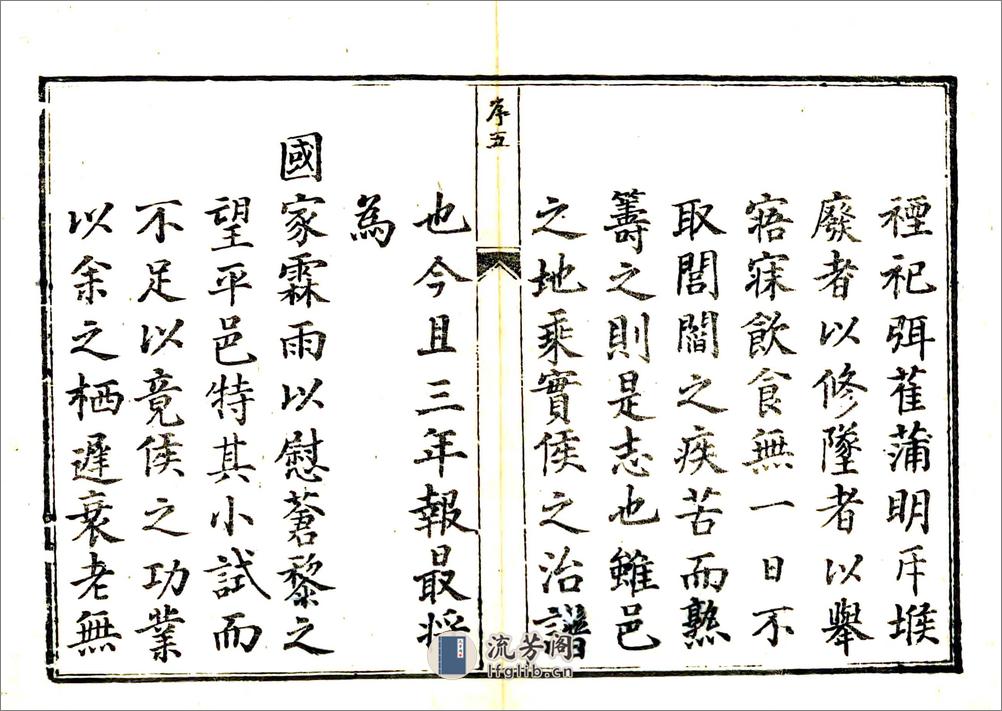 禋祀弭萑蒲明斥堠
廢者以修墜者以舉
寤寐飲食無一日不
取閭閻之疾苦而熟
籌之則是志也雖邑
之地乘實侯之治譜
序五
也今且三年報最將
為
國家霖雨以慰蒼黎之
望平邑特其小試而
不足以竟侯之功業
以余之栖遲衰老無
流芳阁
lfglib.cn